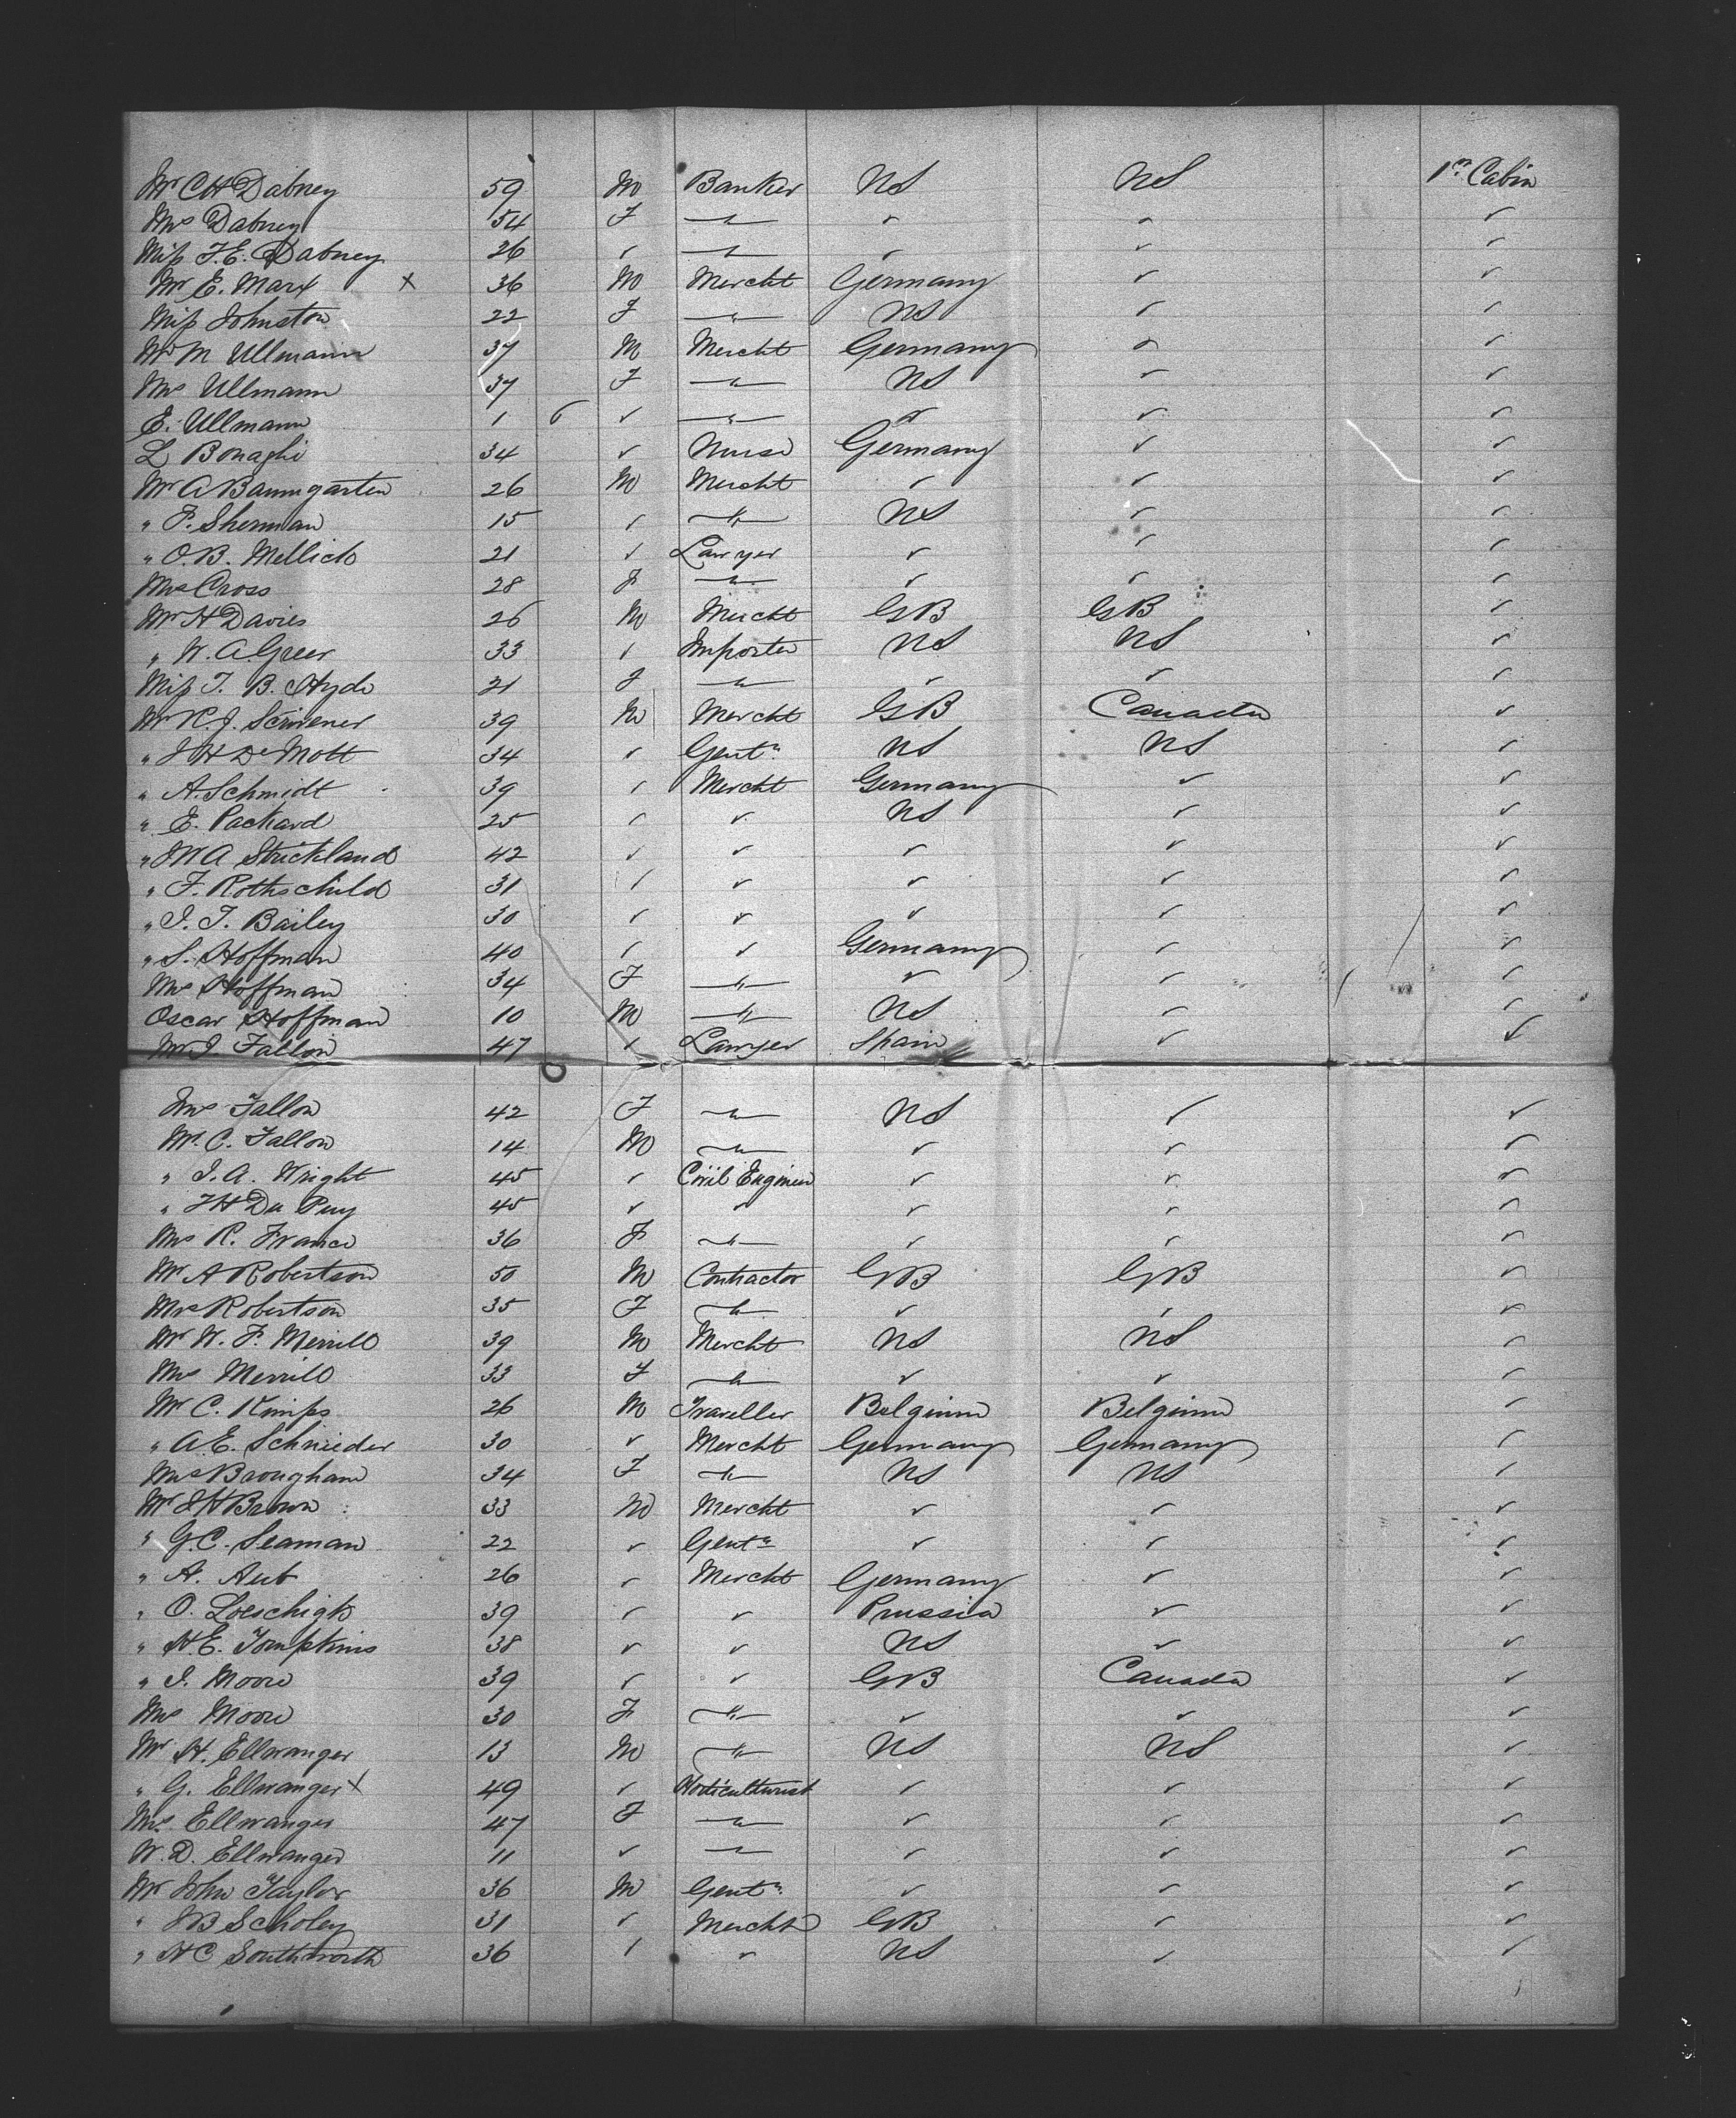 Mr C H Dabney 59 M Banker US US 1st Cabin
Mrs Dabney 54 F — " — ✓ ✓ ✓
Miss F. E. Dabney 26 ✓ — " — ✓ ✓ ✓
Mr E. Marx x 36 M Mercht Germany ✓ ✓
Miss Johnston 22 F — " — US ✓ ✓
Mr M Ullmann 37 M Mercht Germany ✓ ✓
Mrs Ullmann 37 F — " — US ✓ ✓
E. Ullmann 1 6 ✓ — " — ✓ ✓ ✓
L Bonaghi 34 ✓ Nurse Germany ✓ ✓
Mr A Baumgarten 26 M Mercht ✓ ✓ ✓
" F. Sherman 15 ✓ — " — US ✓ ✓
" O. B. Mellick 21 ✓ Lawyer ✓ ✓ ✓
Mrs Cross 28 F — " — ✓ ✓ ✓
Mr H Davies 26 M Mercht GB GB ✓
" W. A. Greer 33 ✓ Importer US US ✓
Miss T. B. Hyde 21 F — " — ✓ ✓ ✓
Mr R. J. Scrivener 39 M Mercht GB Canada ✓
" J H De Mott 34 ✓ Gentn US US ✓
" A. Schmidt 39 ✓ Mercht Germany ✓ ✓
" E. Packard 25 ✓ ✓ US ✓ ✓
" J W A Strickland 42 ✓ ✓ ✓ ✓ ✓
" F. Rothschild 31 ✓ ✓ ✓ ✓ ✓
" I. T. Bailey 30 ✓ ✓ ✓ ✓ ✓
" S. Hoffman 40 ✓ ✓ Germany ✓ ✓
Mrs Hoffman 34 F — " — ✓ ✓ ✓
Oscar Hoffman 10 M — " — US ✓ ✓
Mr J. Fallon 47 ✓ Lawyer Spain ✓ ✓
Mrs Fallon 42 F — " — US ✓ ✓
Mr C. Fallon 14 M — " — ✓ ✓ ✓
" I. A. Wright 45 ✓ Civil Engineer ✓ ✓ ✓
" J H Du Puy 45 ✓ ✓ ✓ ✓ ✓
Mrs R. France 36 F — " — ✓ ✓ ✓
Mr A Robertson 50 M Contractor GB GB ✓
Mrs Robertson 35 F — " — ✓ ✓ ✓
Mr W. F. Merrill 39 M Mercht US US ✓
Mrs Merrill 33 F — " — ✓ ✓ ✓
Mr C. Kimps 26 M Traveller Belgium Belgium ✓
" A E. Schnieder 30 ✓ Mercht Germany Germany ✓
Mrs Brougham 34 F — " — US US ✓
Mr J H Brown 33 M Mercht ✓ ✓ ✓
" G. C. Seaman 22 ✓ Gentn ✓ ✓ ✓
" A. Aub 26 ✓ Mercht Germany ✓ ✓
" O. Loeschigk 39 ✓ ✓ Prussia ✓ ✓
" H. E. Tompkins 38 ✓ ✓ US ✓ ✓
" J. Moore 39 ✓ ✓ GB Canada ✓
Mrs Moore 30 F — " — ✓ ✓ ✓
Mr H. Ellwanger 13 M — " — US US ✓
" G. Ellwanger x 49 ✓ Horticulturist ✓ ✓ ✓
Mrs Ellwanger 47 F — " — ✓ ✓ ✓
W. D. Ellwanger 11 ✓ — " — ✓ ✓ ✓
Mr John Taylor 36 M Gentn ✓ ✓ ✓
" J B Scholey 31 ✓ Mercht GB ✓ ✓
" H C Southworth 36 ✓ ✓ US ✓ ✓